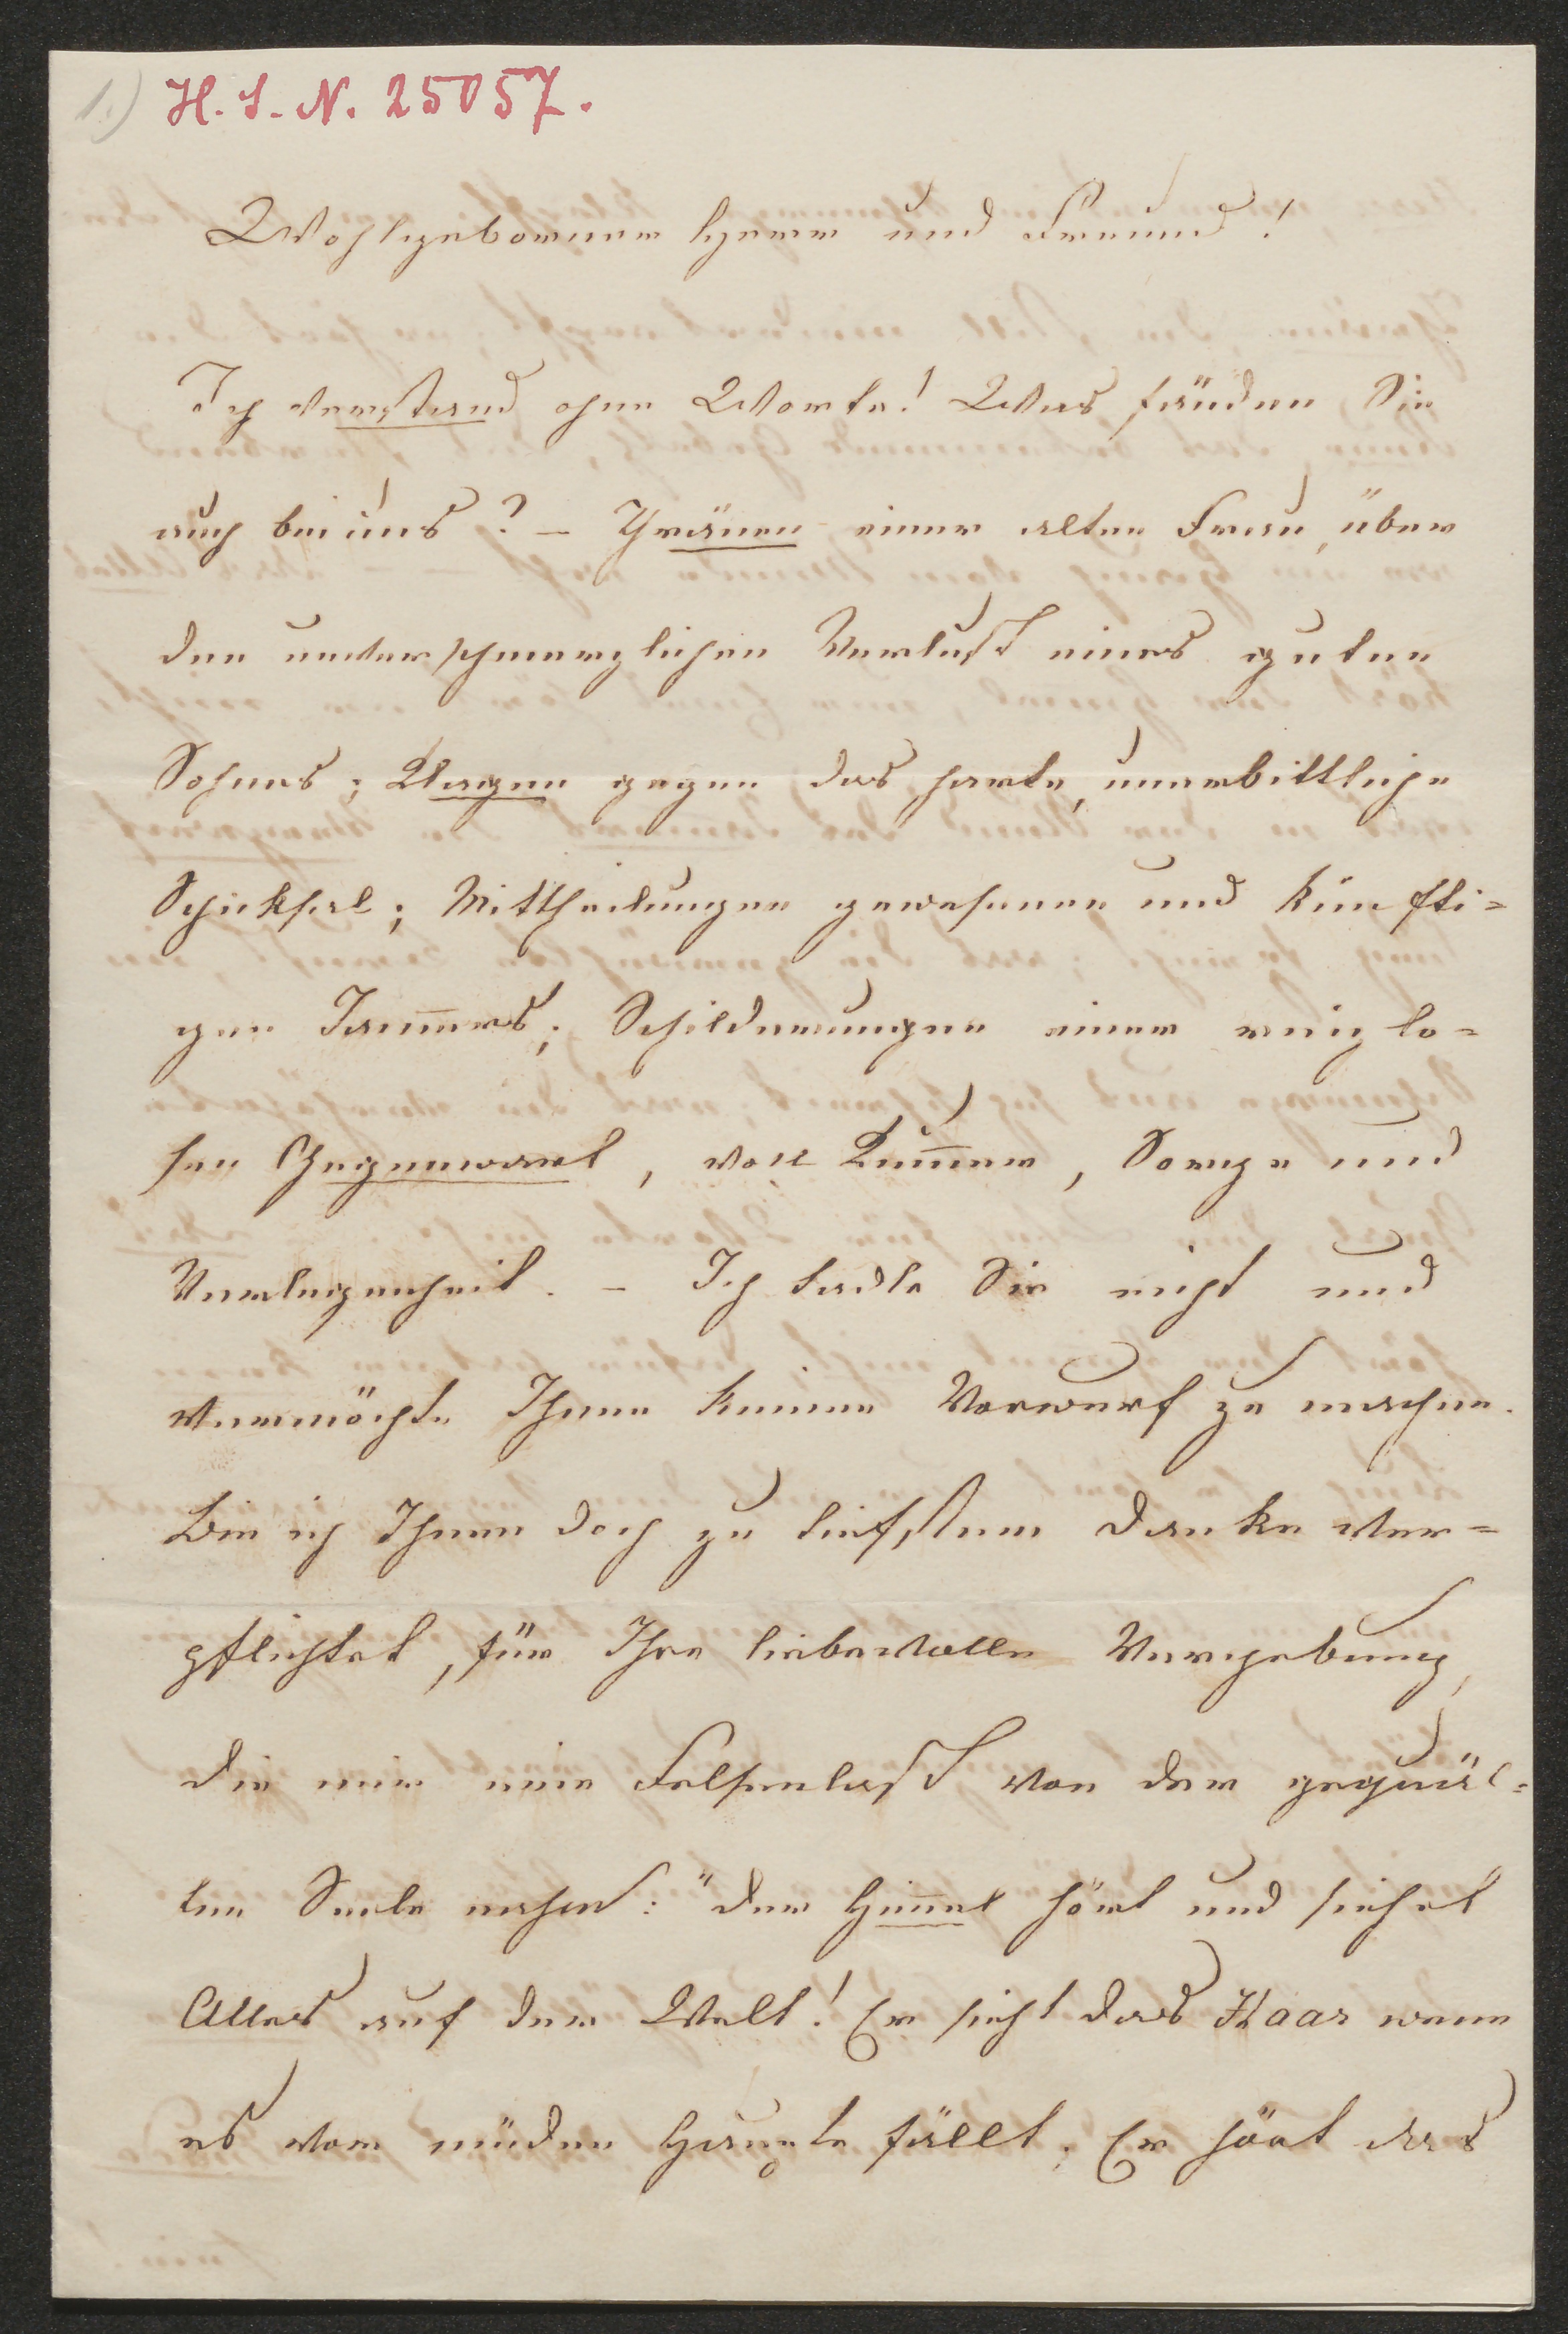 1.) H. I. N. 25057.
Wohlgeborner Herr und Freund!
Ich verstand ohne Worte! Was fänden Sie
auch bei uns? – Thränen einer alten Frau, über
den unverschmerzlichen Verlust eines guten
Sohnes; Klagen gegen das harte, unerbittliche
Schicksal; Mittheilungen gewesenen und künfti=
gen Jam̅ers; Schilderungen einer reizlo=
sen Gegenwart, voll Kum̅er, Sorge und
Verlegenheit. – Ich tadle Sie nicht und
vermöchte Ihnen keinen Vorwurf zu machen.
Bin ich Ihnen doch zu tiefstem Danke ver=
pflichtet, für Ihre liebevolle Vergebung,
die mir eine Felsenlast von der gequäl=
ten Seele nahm: "der Him̅el hört und siehet
Alles auf der Welt! Er sieht das Haar wenn
es vom müden Haupte fällt; Er hört das